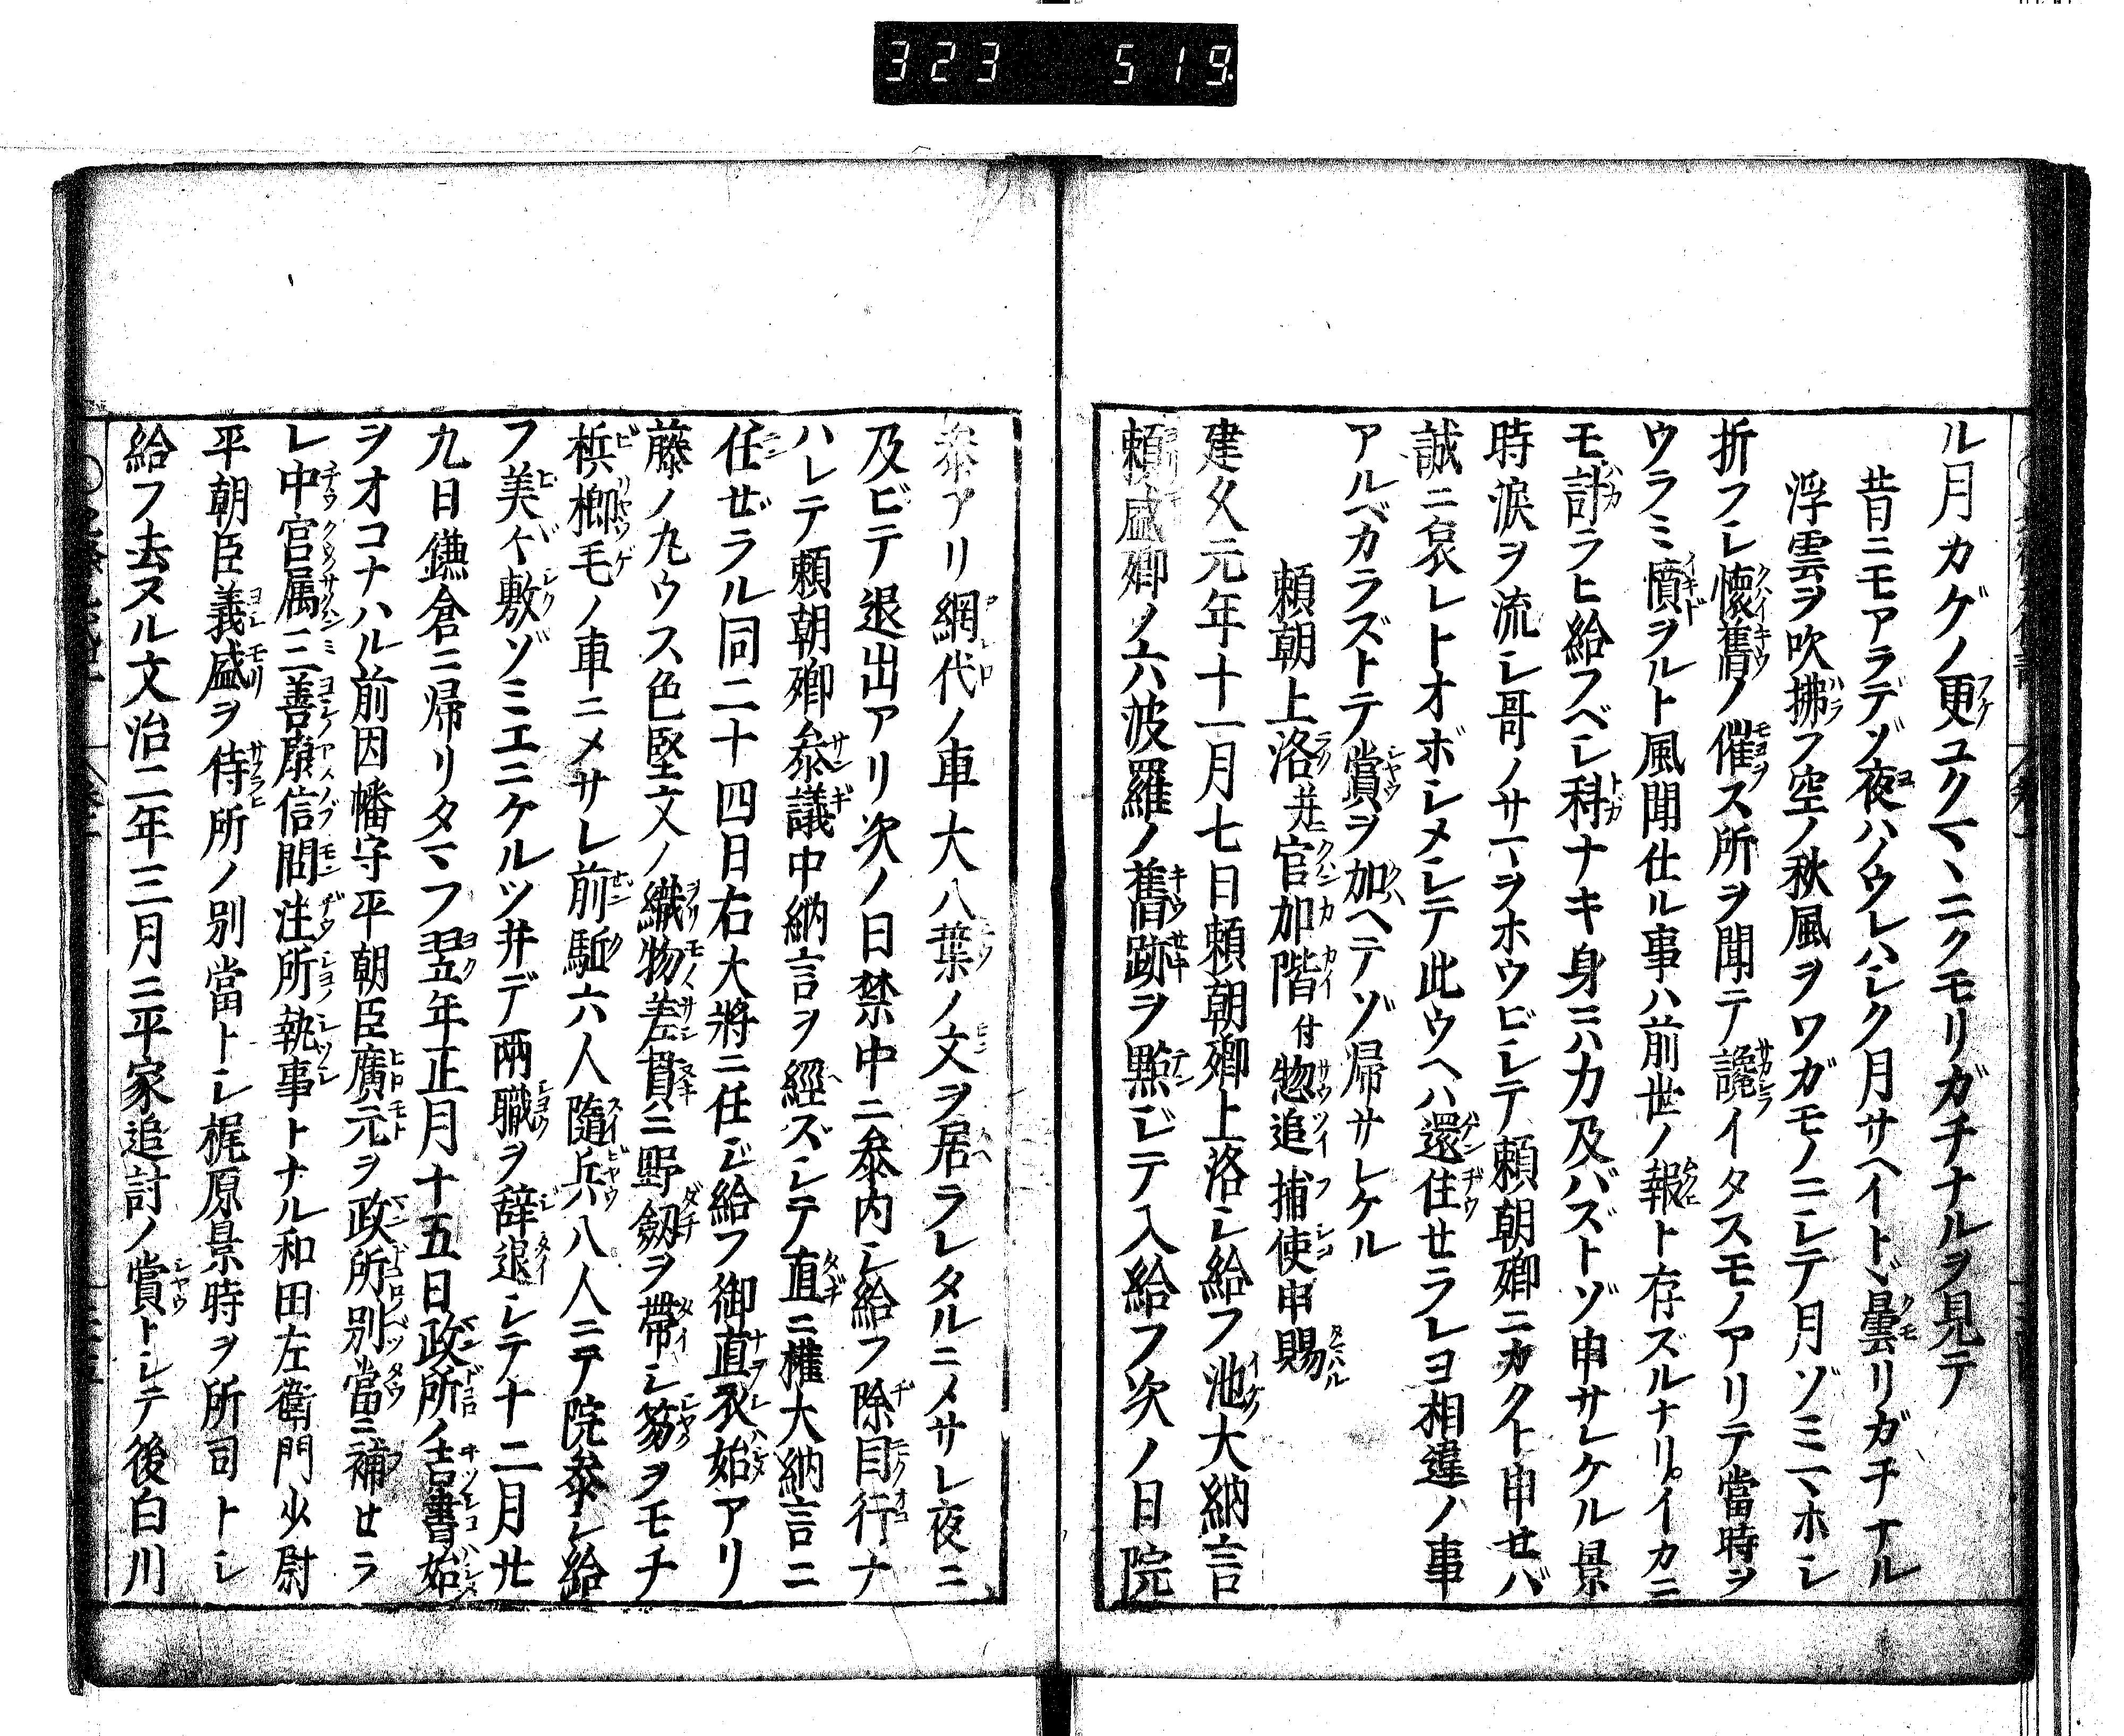 323 519
ル月カゲノ更ユクマヽニクモリガチナルヲ見テ
昔ニモアラデゾ夜ハノウレハシク月サヘイトヾ曇リガチナル
浮雲ヲ吹拂フ空ノ秋風ヲワガモノニシテ月ゾミマホシ
折フシ懷舊ノ催ス所ヲ聞テ讒イタスモノアリテ當時ヲ
ウラミ憤ヲルト風聞仕ル事ハ前世ノ報ト存ズルナリイカニ
モ計ラヒ給フベシ科ナキ身ニハ力及バズトゾ申サレケル景
時淚ヲ流シ哥ノサマヲホウビシテ賴朝卿ニカクト申せバ
誠ニ哀レトオボシメシテ此ウヘハ還住セラレヨ相違ノ事
アルベカラズトテ賞ヲ加ヘテゾ帰サレケル
賴朝上洛幷官加階付惣追捕使申賜
建久元年十一月七日賴朝卿上洛シ給フ池大納言
賴盛卿ノ六波羅ノ舊跡ヲ點ジテ入給フ次ノ日院
泰アリ網代ノ車大八葉ノ文ヲ居ラレタルニメサレ夜ニ
及ビテ退出アリ次ノ日禁中ニ叅内シ給フ除目行ナ
ハレテ賴朝卿叅議中納言ヲ經ズシテ直ニ權大納言ニ
任ぜラル同二十四日右大將ニ任ジ給フ御直衣始アリ
藤ノ丸ウス色堅文ノ織物差貫ニ野劔ヲ帶シ笏ヲモチ
檳榔毛ノ車ニメサレ前駈六人隨兵八人ニテ院叅シ給
フ美々敷ゾミエニケルツ井デ兩職ヲ辞退シテ十二月廿
九日鎌倉ニ帰リタマフ翌年正月十五日政所ノ吉書始
ヲオコナハル前因幡守平朝臣廣元ヲ政所別當ニ補せラ
レ中宮属三善康信問注所執事トナル和田左衛門少尉
平朝臣義盛ヲ侍所ノ別當トシ梶原景時ヲ所司トシ
給フ去ヌル文治二年三月ニ平家追討ノ賞トシテ後白川